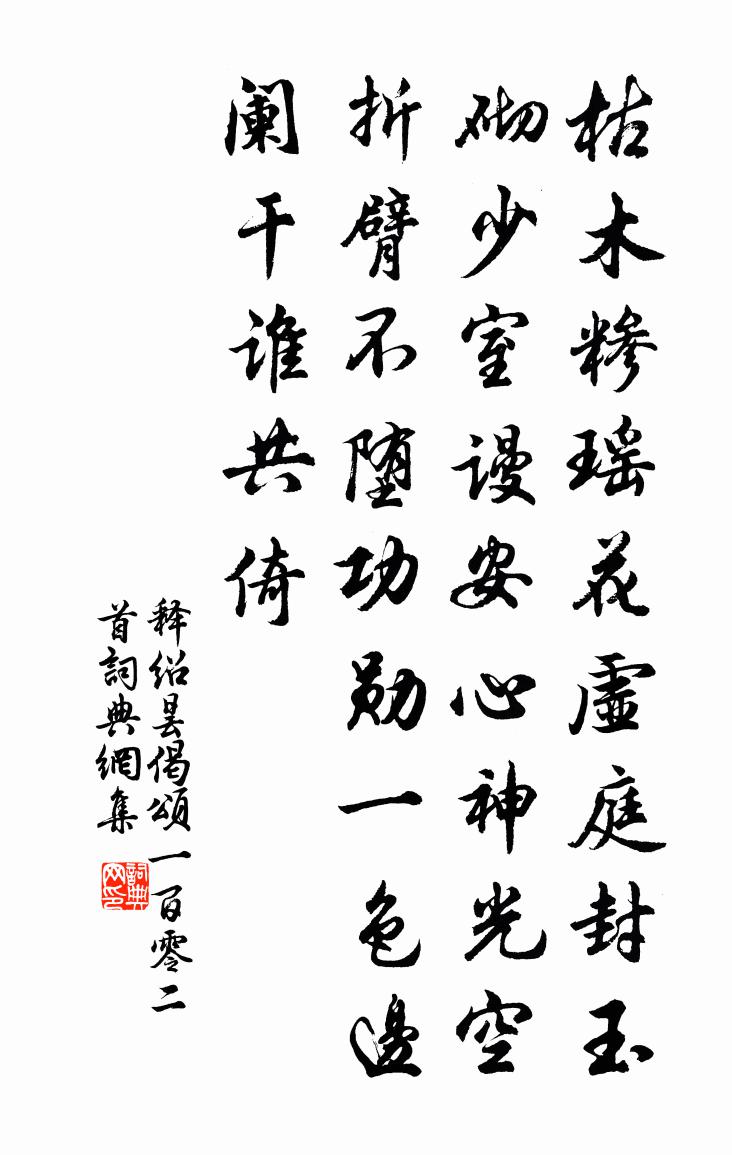 枯木糝瑶花虛庭封玉
砌少室谩安心神光空
折臂不堕功勋一色邊
阑干谁共倚
释绍昙偈頌一百零二
首詞典網集
詞典网印